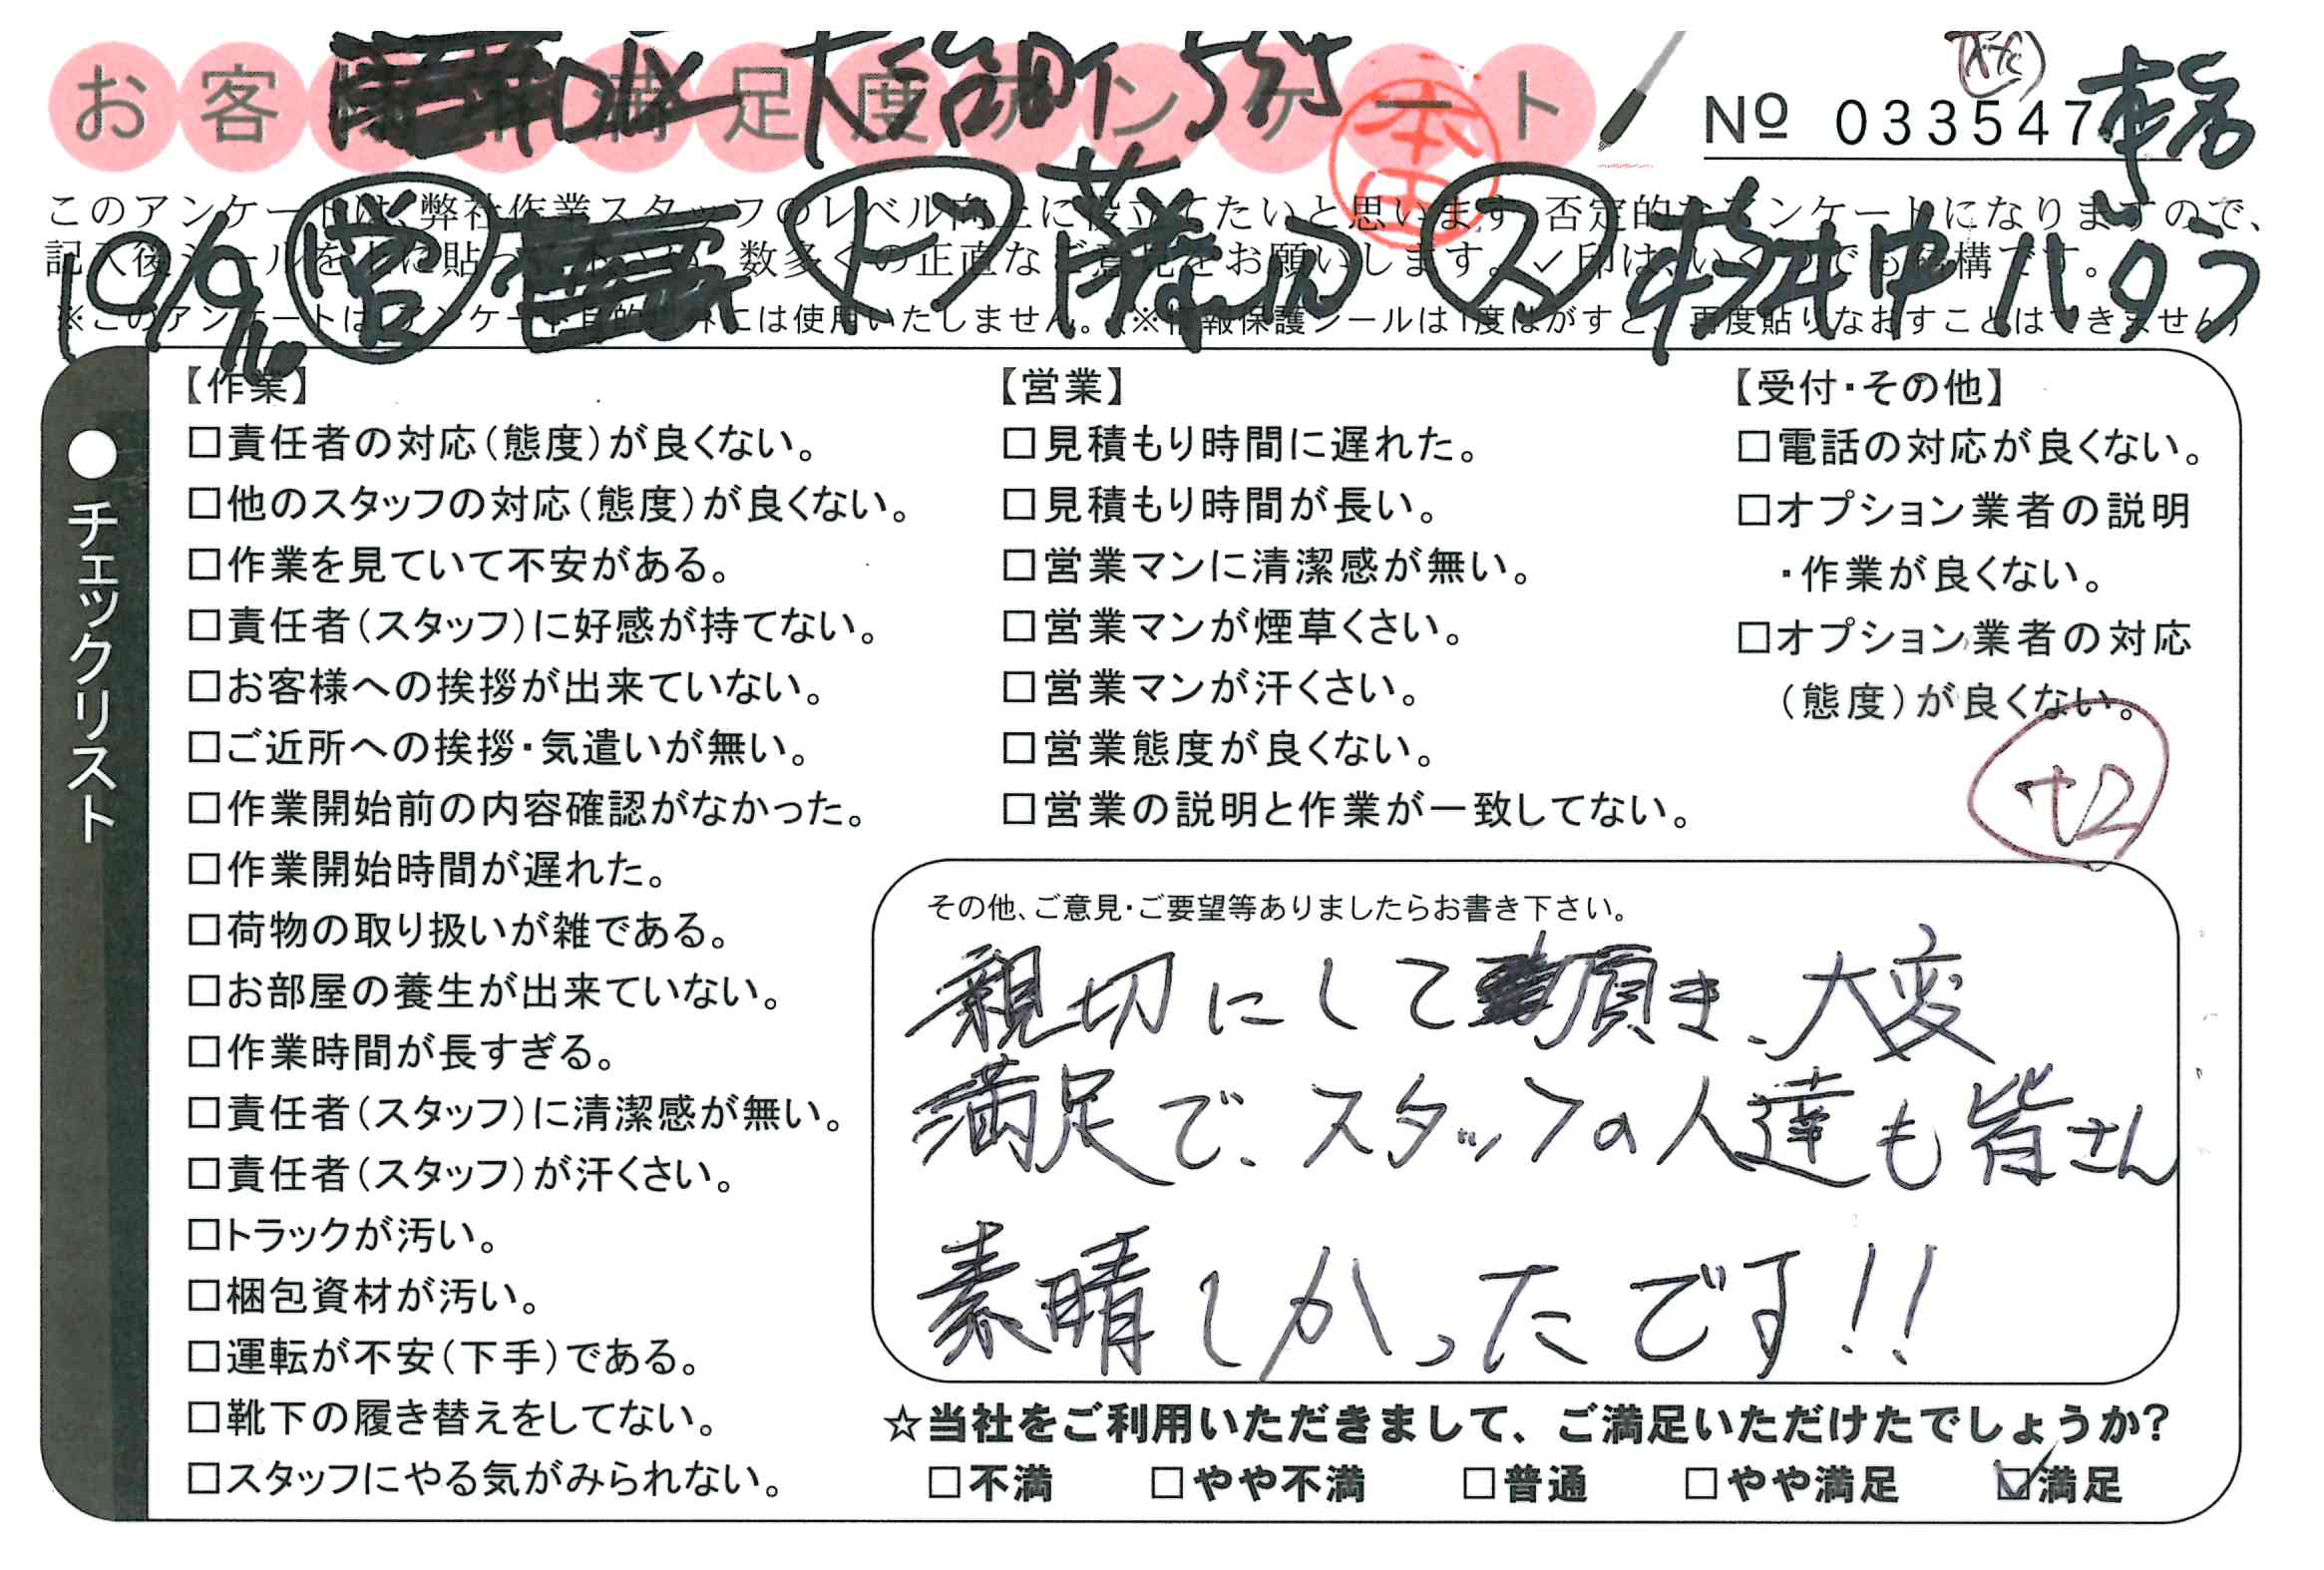 お客様満足度アンケート
大治町
No 033547
本田
このアンケートは、弊社作業スタッフのレベル向上に役立てたいと思います。否定的なアンケートになりますので、
記入後シールを上に貼って下さい。数多くの正直なご意見をお願いします。✓印は、いくつでも結構です。
※このアンケートは、アンケート目的以外には使用いたしません。(※情報保護シールは1度はがすと、再度貼りなおすことはできません)
10/9
営
ト
ス
●チェックリスト
【作業】
□責任者の対応(態度)が良くない。
□他のスタッフの対応(態度)が良くない。
□作業を見ていて不安がある。
□責任者(スタッフ)に好感が持てない。
□お客様への挨拶が出来ていない。
□ご近所への挨拶・気遣いが無い。
□作業開始前の内容確認がなかった。
□作業開始時間が遅れた。
□荷物の取り扱いが雑である。
□お部屋の養生が出来ていない。
□作業時間が長すぎる。
□責任者(スタッフ)に清潔感が無い。
□責任者(スタッフ)が汗くさい。
□トラックが汚い。
□梱包資材が汚い。
□運転が不安(下手)である。
□靴下の履き替えをしてない。
□スタッフにやる気がみられない。
【営業】
□見積もり時間に遅れた。
□見積もり時間が長い。
□営業マンに清潔感が無い。
□営業マンが煙草くさい。
□営業マンが汗くさい。
□営業態度が良くない。
□営業の説明と作業が一致してない。
【受付・その他】
□電話の対応が良くない。
□オプション業者の説明
・作業が良くない。
□オプション業者の対応
(態度)が良くない。
+2
その他、ご意見・ご要望等ありましたらお書き下さい。
親切にして頂き、大変
満足で、スタッフの人達も皆さん
素晴しかったです!!
☆当社をご利用いただきまして、ご満足いただけたでしょうか?
□不満 □やや不満 □普通 □やや満足 ☑満足